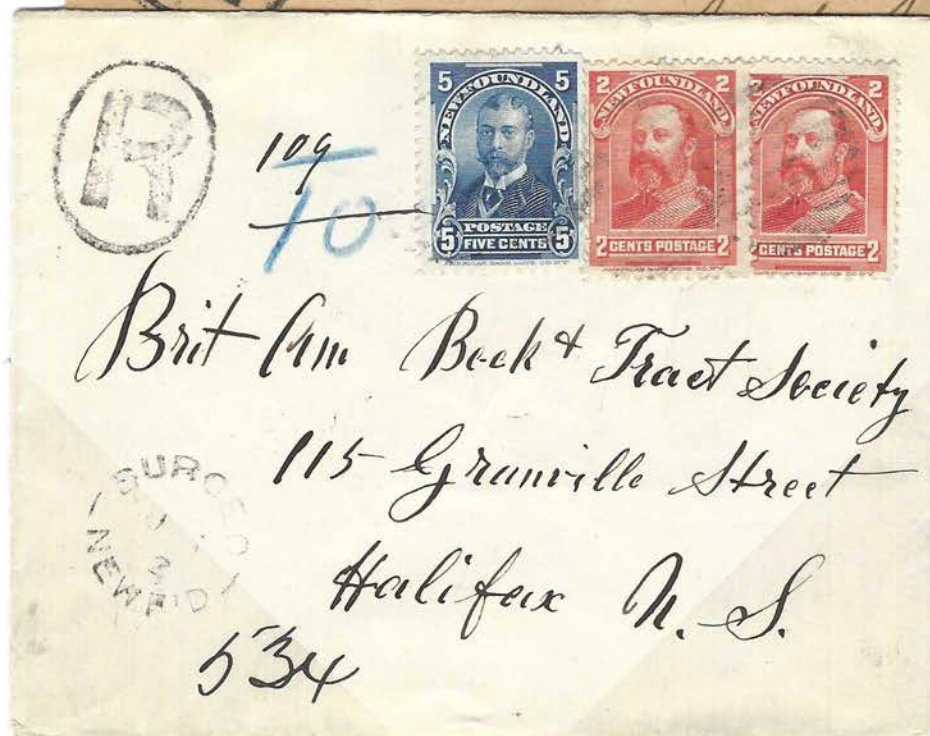 R
109
10
5 5
NEWFOUNDLAND
POSTAGE
5 FIVE CENTS 5
2 2
NEWFOUNDLAND
2 CENTS POSTAGE 2
2 2
NEWFOUNDLAND
CENTS POSTAGE 2
Brit Am Book & Tract Society
115 Granville Street
Halifax N. S.
BURGEO
NEWF'D
534